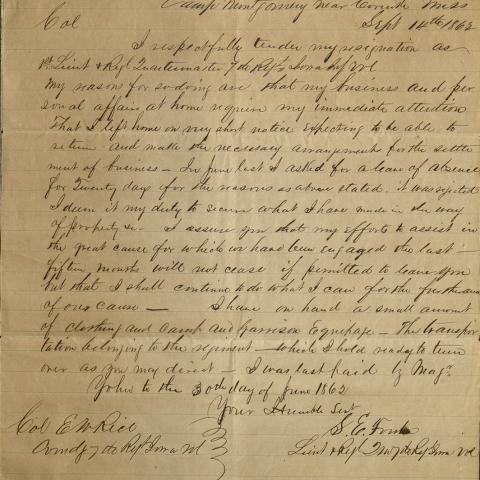 Camp Montgomery near Corinth Miss
Sept 14th 1862
Col
I respectfully tender my resignation as
1st Lieut & Regl Quartermaster 7 de Regt Iowa Inf Vol
My reason for so doing are, that my business and per
sonal affairs at home require my immediate attention
That I left home on very short notice expecting to be able to
return and make the necessary arrangements for the settle
ment of business – In June last I asked for a leave of absence
for Twenty days for the reasons as above stated. it was rejected
I deem it my duty to secure what I have made in the way
of property &c – I assure you that my efforts to assist in
the great cause for which we have been engaged the last
fifteen months will not cease if permitted to leave you
but that I shall continue to do what I can for the furtherance
of our cause – I have on hand a small amount
of clothing and Camp and Garrison Equipage – The transpor
tation belonging to the regiment – which I hold ready to turn
over as you may direct – I was last paid by Majr
to the 30th day of June 1862
Your Humble Servt
Col E W Rice
S. E.
Comdg 7 de Regt Iowa Vol
Lieut & Regl Q M 7 de Regt Iowa Vol